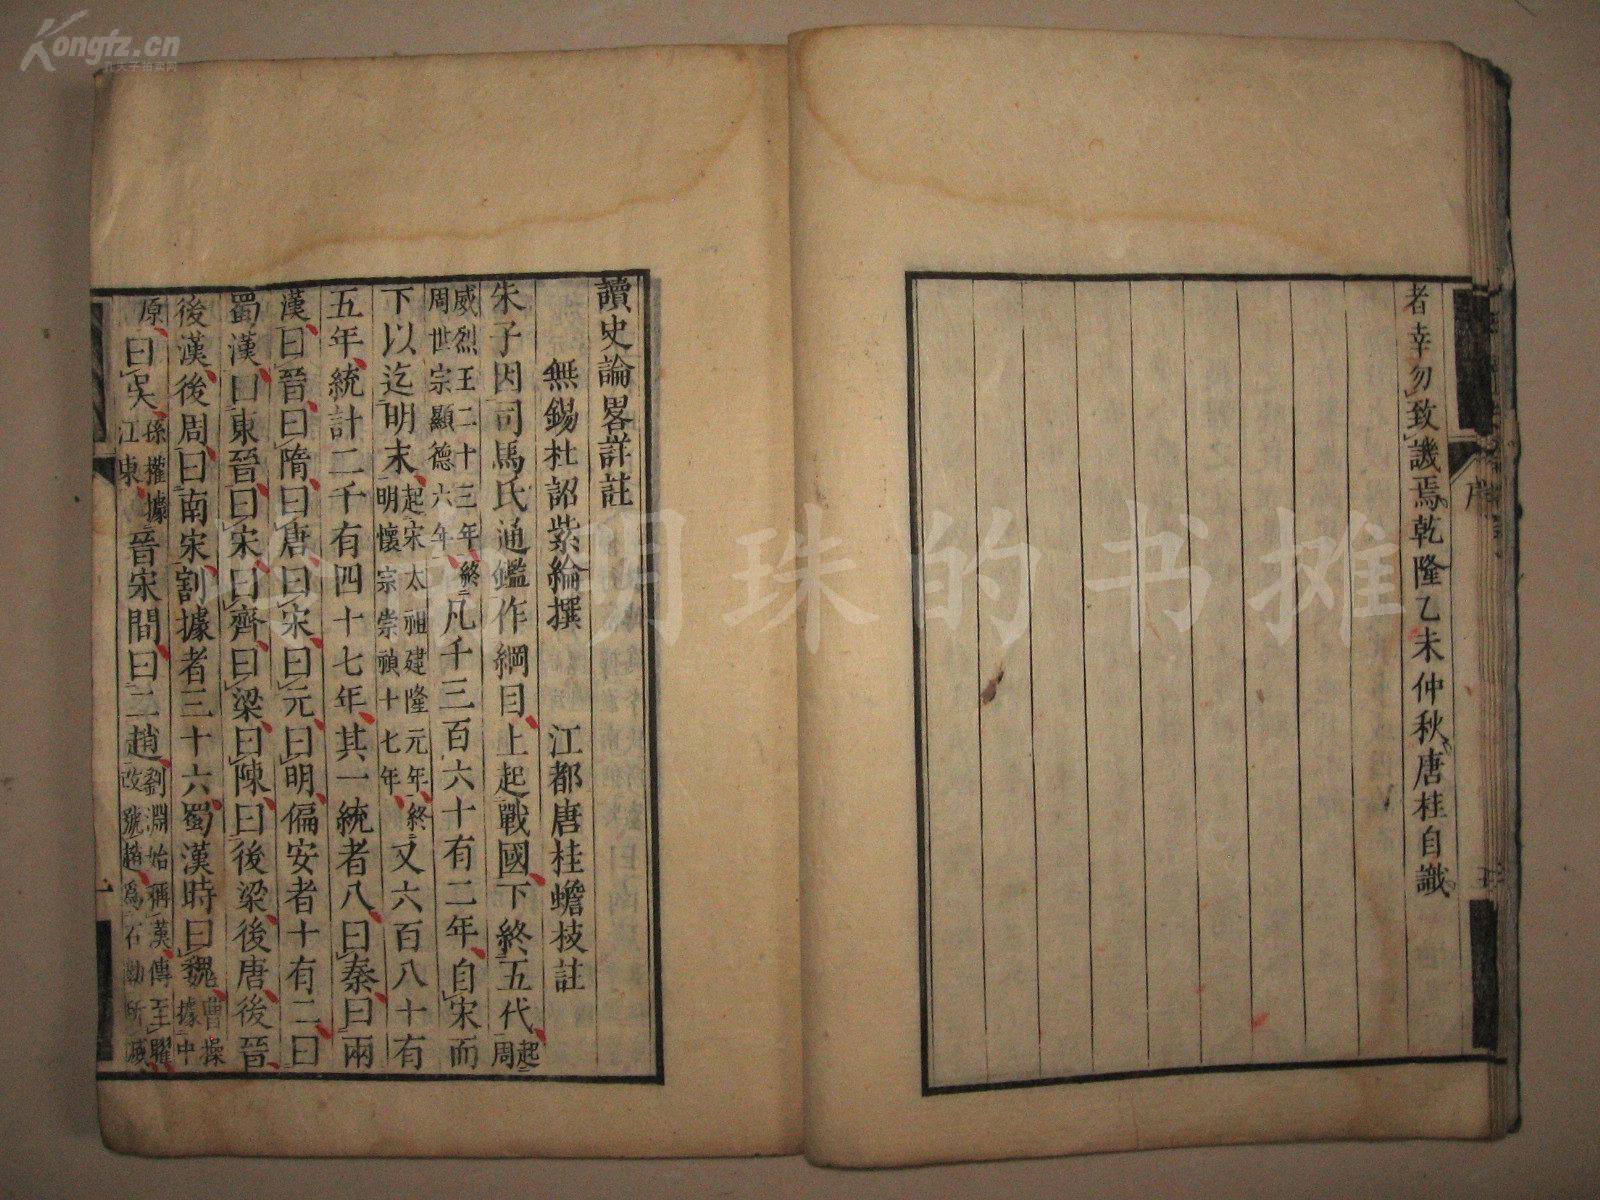 者幸勿致譏焉乾隆乙未仲秋唐桂自識
序
讀史論畧詳註
無錫杜詔紫綸撰 江都唐桂蟾枝註
朱子因司馬氏通鑑作綱目上起戰國下終五代起周
威烈王二十三年終周世宗顯德六年凡千三百六十有二年自宋而
下以迄明末起宋太祖建隆元年終明懷宗崇禎十七年又六百八十有
五年統計二千有四十七年其一統者八曰秦曰兩
漢曰晉曰隋曰唐曰宋曰元曰明偏安者十有二曰
蜀漢曰東晉曰宋曰齊曰梁曰陳曰後梁後唐後晉
後漢後周曰南宋割據者三十六蜀漢時曰魏曹操據中
原曰吳孫權據江東晉宋間曰二趙劉淵始稱漢傳至曜改號趙爲石勒所滅
一
Kongfz.cn
孔夫子拍卖网
明珠的书摊